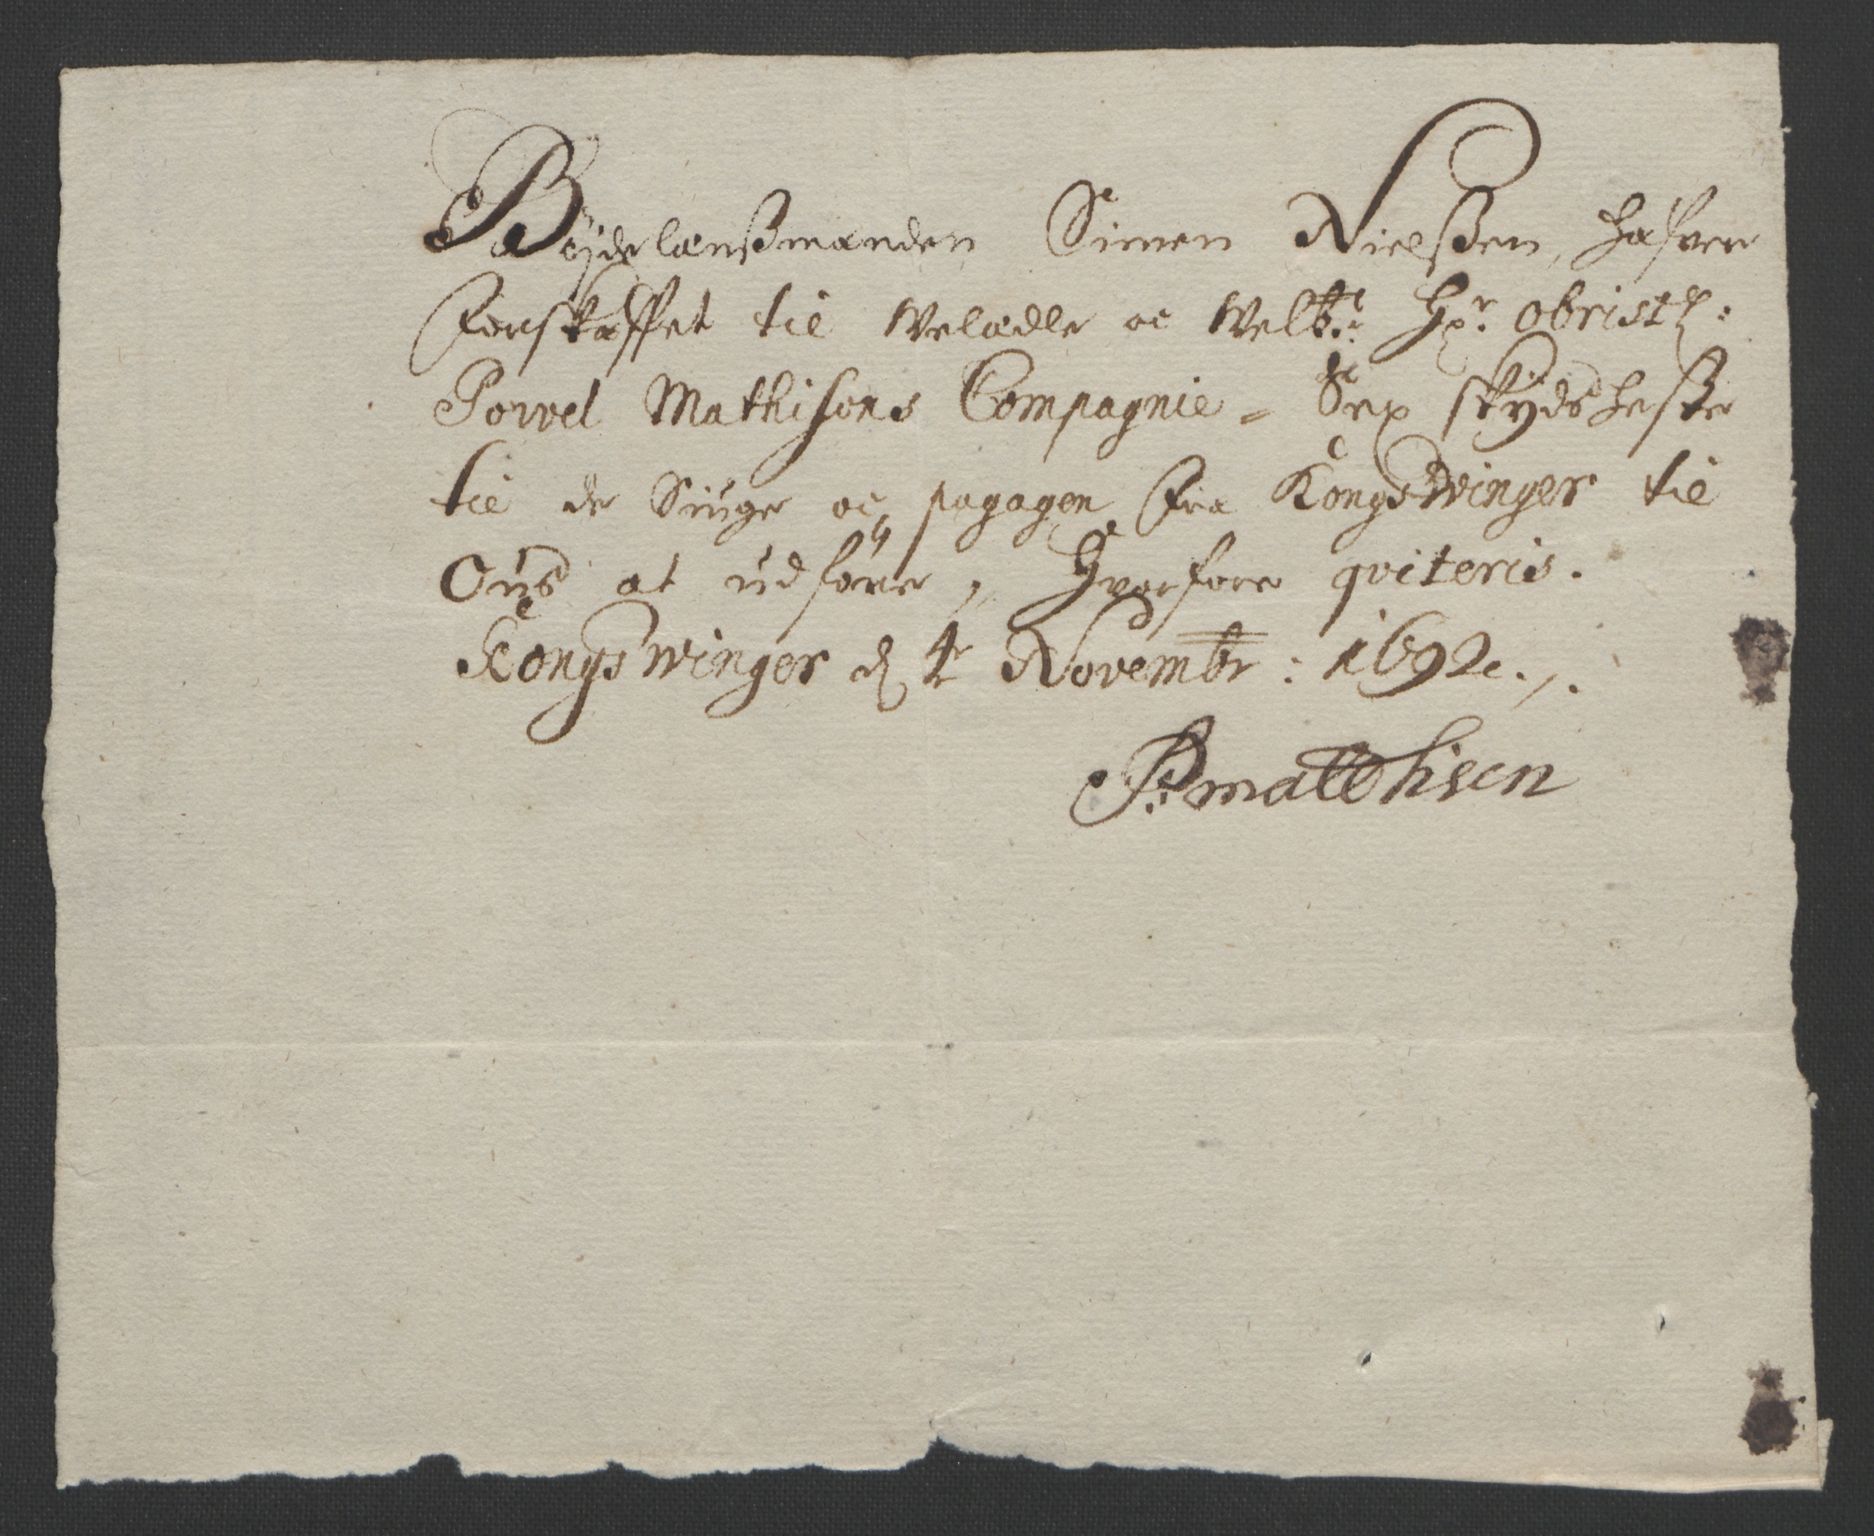 Böjdelænßmanden Simen Nielßen, hafver
Forskaffet til Welædle oc Welb:r Hr: Obristl:
Powel Mathisons Compagnie - Sex skydsheste
til de Siuge oc pagagen fra Kongswinger til
Ous at udføre, Hvorfore qviteris.
Kongswinger d 4 Novembr: 1692.
P: matthisen